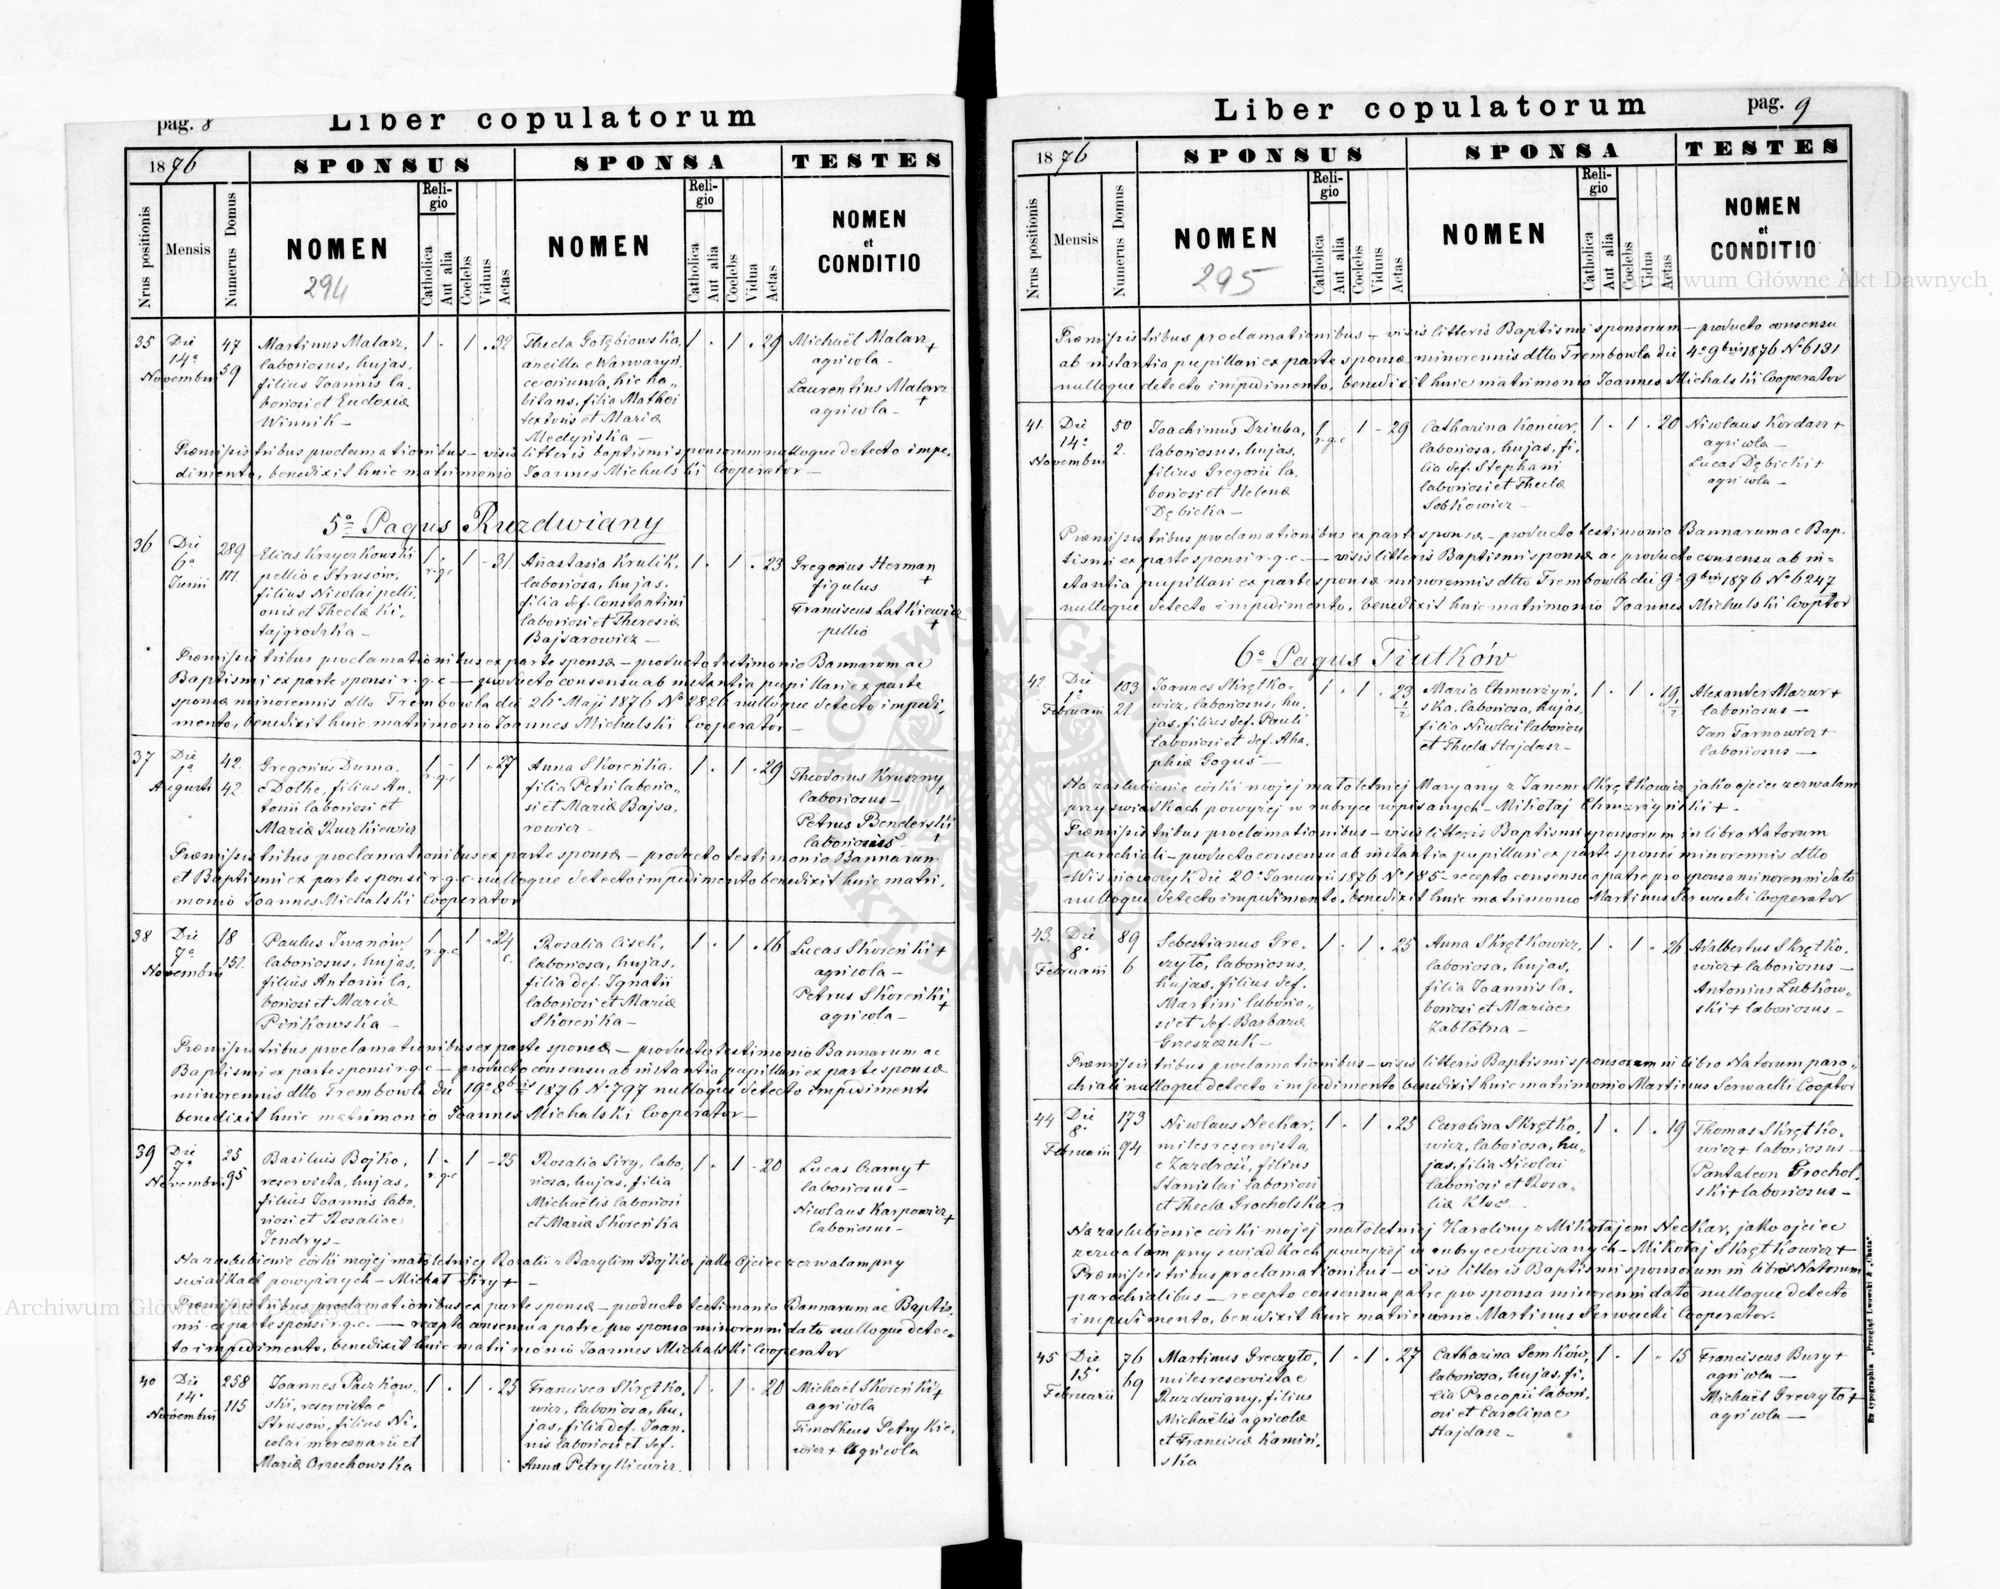 pag. 8
Liber copulatorum
1876
SPONSUS
SPONSA
TESTES
Nrus positionis
Mensis
Numerus Domus
NOMEN
294
Religio
Catholica
Aut alia
Coelebs
Viduus
Aetas
NOMEN
Religio
Catholica
Aut alia
Coelebs
Vidua
Aetas
NOMEN
et
CONDITIO
35 Die 14a Novembris 47 59
Martinus Malarz,
laboriosus, hujas,
filius Joannis la-
boriosi et Eudoxiæ
Winnik —
1 . 1 . 32
Thecla Gołębiowska,
ancilla e Warwaryń-
ce oriunda, hic ha-
bitans, filia Mathei
textoris et Mariæ
Medyńska —
1 . 1 . 29
Michaël Malarz +
agricola —
Laurentius Malarz +
agricola —
Præmissis tribus proclamationibus — visis litteris baptismi sponsorum nulloque detecto impe-
dimento, benedixit huic matrimonio Joannes Michalski Cooperator —
5o Pagus Ruzdwiany
36 Die 6a Junii 289 111.
Elias Krzyczkowski
pellio e Strusów,
filius Nicolai pelli-
onis et Theclæ Ki-
tajgrodzka —
1 r.g.c 1 - 31.
Anastasia Krulik,
laboriosa, hujas,
filia def. Constantini
laboriosi et Theresiæ
Bajsarowicz —
1 . 1 . 23
Gregorius Herman +
figulus
Franciscus Latkiewicz +
pellio
Præmissis tribus proclamationibus ex parte sponsæ — producto testimonio Bannarum ac
Baptismi ex parte sponsi r.g.c — producto consensu ab instantia pupillari ex parte
sponsæ minorennis dtto Trembowla die 26a Maji 1876 No 2826 nulloque detecto impedi-
mento, benedixit huic matrimonio Joannes Michalski Cooperator —
37 Die 1a Augusti 42 42.
Gregorius Duma,
e Dołhe, filius An-
tonii laboriosi et
Mariæ Ruzkiewicz
1 r.g.c 1 . 27
Anna Skoreńka.
filia Petri laborio-
si et Mariæ Bajsa-
rowicz —
1 . 1 . 29
Theodorus Kruszny +
laboriosus —
Petrus Benderski +
laboriosus
Præmissis tribus proclamationibus ex parte sponsæ — producto testimonio Bannarum
et Baptismi ex parte sponsi r.g.c. nulloque detecto impedimento benedixit huic matri-
monio Joannes Michalski Cooperator
38 Die 7a Novembris 18 151.
Paulus Iwanów,
laboriosus, hujas,
filius Antonii la-
boriosi et Mariæ
Pińkowska —
1 r.g.c 1 . 24
Rosalia Cisek,
laboriosa, hujas,
filia def. Ignatii
laboriosi et Mariæ
Skoreńka —
1 . 1 . 16
Lucas Skoreński +
agricola —
Petrus Skoreński +
agricola —
Præmissis tribus proclamationibus ex parte sponsæ — producto testimonio Bannarum ac
Baptismi ex parte sponsi r.g.c — producto consensu ab instantia pupillari ex parte sponsæ
minorennis dtto Trembowla die 19a 8bris 1876 No 797 nulloque detecto impedimento
benedixit huic matrimonio Joannes Michalski Cooperator —
39 Die 7a Novembris 25 95
Basilius Bojko,
reservista, hujas,
filius Joannis labo-
riosi et Rosaliae
Jendrys —
1 r.g.c 1 - 25
Rosalia Siry, labo-
riosa, hujas, filia
Michaëlis laboriosi
et Mariæ Skoreńka
1 . 1 - 20
Lucas Czarny +
laboriosus —
Nicolaus Karpowicz +
laboriosus —
Na zaślubienie córki mojej małoletniej Rozalii z Bazylim Bojko, jako Ojciec zezwalam przy
świadkach powyższych — Michał Siry +
Præmissis tribus proclamationibus ex parte sponsæ — producto testimonio Bannarum ac Baptis-
mi ex parte sponsi r.g.c. — recepto consensu a patre pro sponsa minorenni dato nulloque detec-
to impedimento, benedixit huic matrimonio Joannes Michalski Cooperator
40 Die 14a Novembris 258 115
Joannes Paczkow-
ski, reservista e
Strusów, filius Ni-
colai mercenarii et
Mariæ Orzechowska
1 . 1 . 25
Francisca Skrętko-
wicz, laboriosa, hu-
jas, filia def. Joan-
nis laboriosi et def.
Annæ Petrykiewicz.
1 . 1 . 20
Michaël Skoreński +
agricola
Timotheus Petrykie-
wicz + agricola
Liber copulatorum
pag. 9
1876
SPONSUS
SPONSA
TESTES
Nrus positionis
Mensis
Numerus Domus
NOMEN
295
Religio
Catholica
Aut alia
Coelebs
Viduus
Aetas
NOMEN
Religio
Catholica
Aut alia
Coelebs
Vidua
Aetas
NOMEN
et
CONDITIO
Præmissis tribus proclamationibus — visis litteris Baptismi sponsorum — producto consensu
ab instantia pupillari ex parte sponsæ minorennis dtto Trembowla die 4a 9bris 1876 No 6131
nulloque detecto impedimento, benedixit huic matrimonio Joannes Michalski Cooperator
41. Die 14a Novembris 50 2.
Joachimus Dziuba,
laboriosus, hujas,
filius Gregorii la-
boriosi et Helenæ
Dębicka —
1 r.g.c 1 - 29
Catharina Koncur,
laboriosa, hujas, fi-
lia def. Stephani
laboriosi et Theclæ
Sobkowicz —
1 . 1 . 20
Nicolaus Kordasz +
agricola —
Lucas Dębicki +
agricola —
Præmissis tribus proclamationibus ex parte sponsæ — producto testimonio Bannarum ac Bap-
tismi ex parte sponsi r.g.c. — visis litteris Baptismi sponsæ ac producto consensu ab in-
stantia pupillari ex parte sponsæ minorennis dtto Trembowla die 9a 9bris 1876 No 6247
nulloque detecto impedimento, benedixit huic matrimonio Joannes Michalski Cooptor
6o Pagus Tiutków
42. Die 1a Februarii 103 21.
Joannes Skrętko-
wicz, laboriosus, hu-
jas, filius def. Pauli
laboriosi et def. Aha-
phiæ Gogus —
1 . 1 . 23 1/2
Maria Chmurzyń-
ska, laboriosa, hujas,
filia Nicolai laboriosi
et Thecla Hajdasz —
1 . 1 . 19 1/2
Alexander Mazur +
laboriosus —
Jan Tarnowicz +
laboriosus —
Na zaślubienie córki mojej małoletniej Maryany z Janem Skrętkowicz jako ojciec zezwalam
przy świadkach powyżej w rubryce wpisanych — Mikołaj Chmurzyński + .
Præmissis tribus proclamationibus — visis litteris Baptismi sponsorum in libro Natorum
parochiali — producto consensu ab instantia pupillari ex parte sponsi minorennis dtto
Wisniowczyk die 20a Januarii 1876 No 185 — recepto consensu a patre pro sponsa minorenni dato
nulloque detecto impedimento, benedixit huic matrimonio Martinus Serwacki Cooperator
43. Die 8a Februarii 89 6
Sebestianus Gre-
czyło, laboriosus,
hujas, filius def.
Martini laborio-
si et def. Barbaræ
Greszczuk —
1 . 1 . 25
Anna Skrętkowicz,
laboriosa, hujas,
filia Joannis la-
boriosi et Mariae
Zabłotna —
1 . 1 . 26
Adalbertus Skrętko-
wicz + laboriosus —
Antonius Lubkow-
ski + laboriosus —
Præmissis tribus proclamationibus — visis litteris Baptismi sponsorum in libro Natorum paro-
chiali nulloque detecto impedimento benedixit huic matrimonio Martinus Serwacki Cooptor
44 Die 8a Februarii 173 94
Nicolaus Neckar,
miles reservista,
e Zazdrość, filius
Stanislai laboriosi
et Theclæ Grocholska
1 . 1 . 25
Carolina Skrętko-
wicz, laboriosa, hu-
jas, filia Nicolai
laboriosi et Rosa-
liæ Kloc .
1 . 1 . 19
Thomas Skrętko-
wicz + laboriosus —
Pantaleon Grochol-
ski + laboriosus —
Na zaślubienie córki mojej małoletniej Karoliny z Mikołajem Neckar, jako ojciec
zezwalam przy świadkach powyżej w rubryce wpisanych — Mikołaj Skrętkowicz +
Præmissis tribus proclamationibus — visis litteris Baptismi sponsorum in libris Natorum
parochialibus — recepto consensu a patre pro sponsa minorenni dato nulloque detecto
impedimento, benedixit huic matrimonio Martinus Serwacki Cooperator.
45 Die 15a Februarii 76 69
Martinus Greczyło,
miles reservista e
Ruzdwiany, filius
Michaëlis agricolæ
et Franciscæ Kamiń-
ska
1 . 1 . 27
Catharina Semków,
laboriosa, hujas, fi-
lia Procopii labori-
osi et Carolinae
Hajdasz —
1 . 1 . 15
Franciscus Bury +
agricola —
Michaël Greczyło +
agricola —
Ex typographia „Przegląd Lwowski & „Chata".
Archiwum Główne Akt Dawnych
Archiwum Główne Akt Dawnych
ARCHIWUM GŁÓWNE AKT DAWNYCH